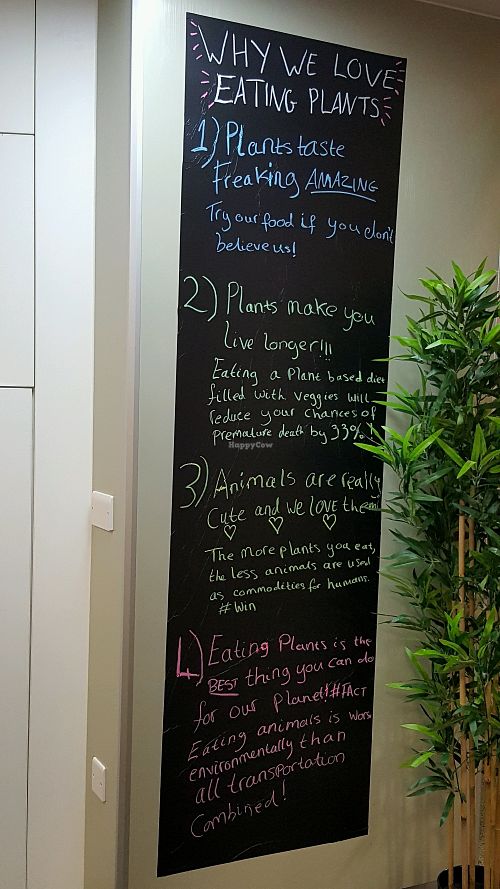 WHY WE LOVE
EATING PLANTS
1) Plants taste
Freaking AMAZING
Try our food if you don't
believe us!
2) Plants make you
live longer!!!
Eating a plant based diet
filled with veggies will
reduce your chances of
premature death by 33%!
HappyCow
3) Animals are really
Cute and we LOVE them
The more plants you eat,
the less animals are used
as commodities for humans.
#Win
4) Eating Plants is the
BEST thing you can do
for our Planet! #FACT
Eating animals is wors
environmentally than
all transportation
Combined!